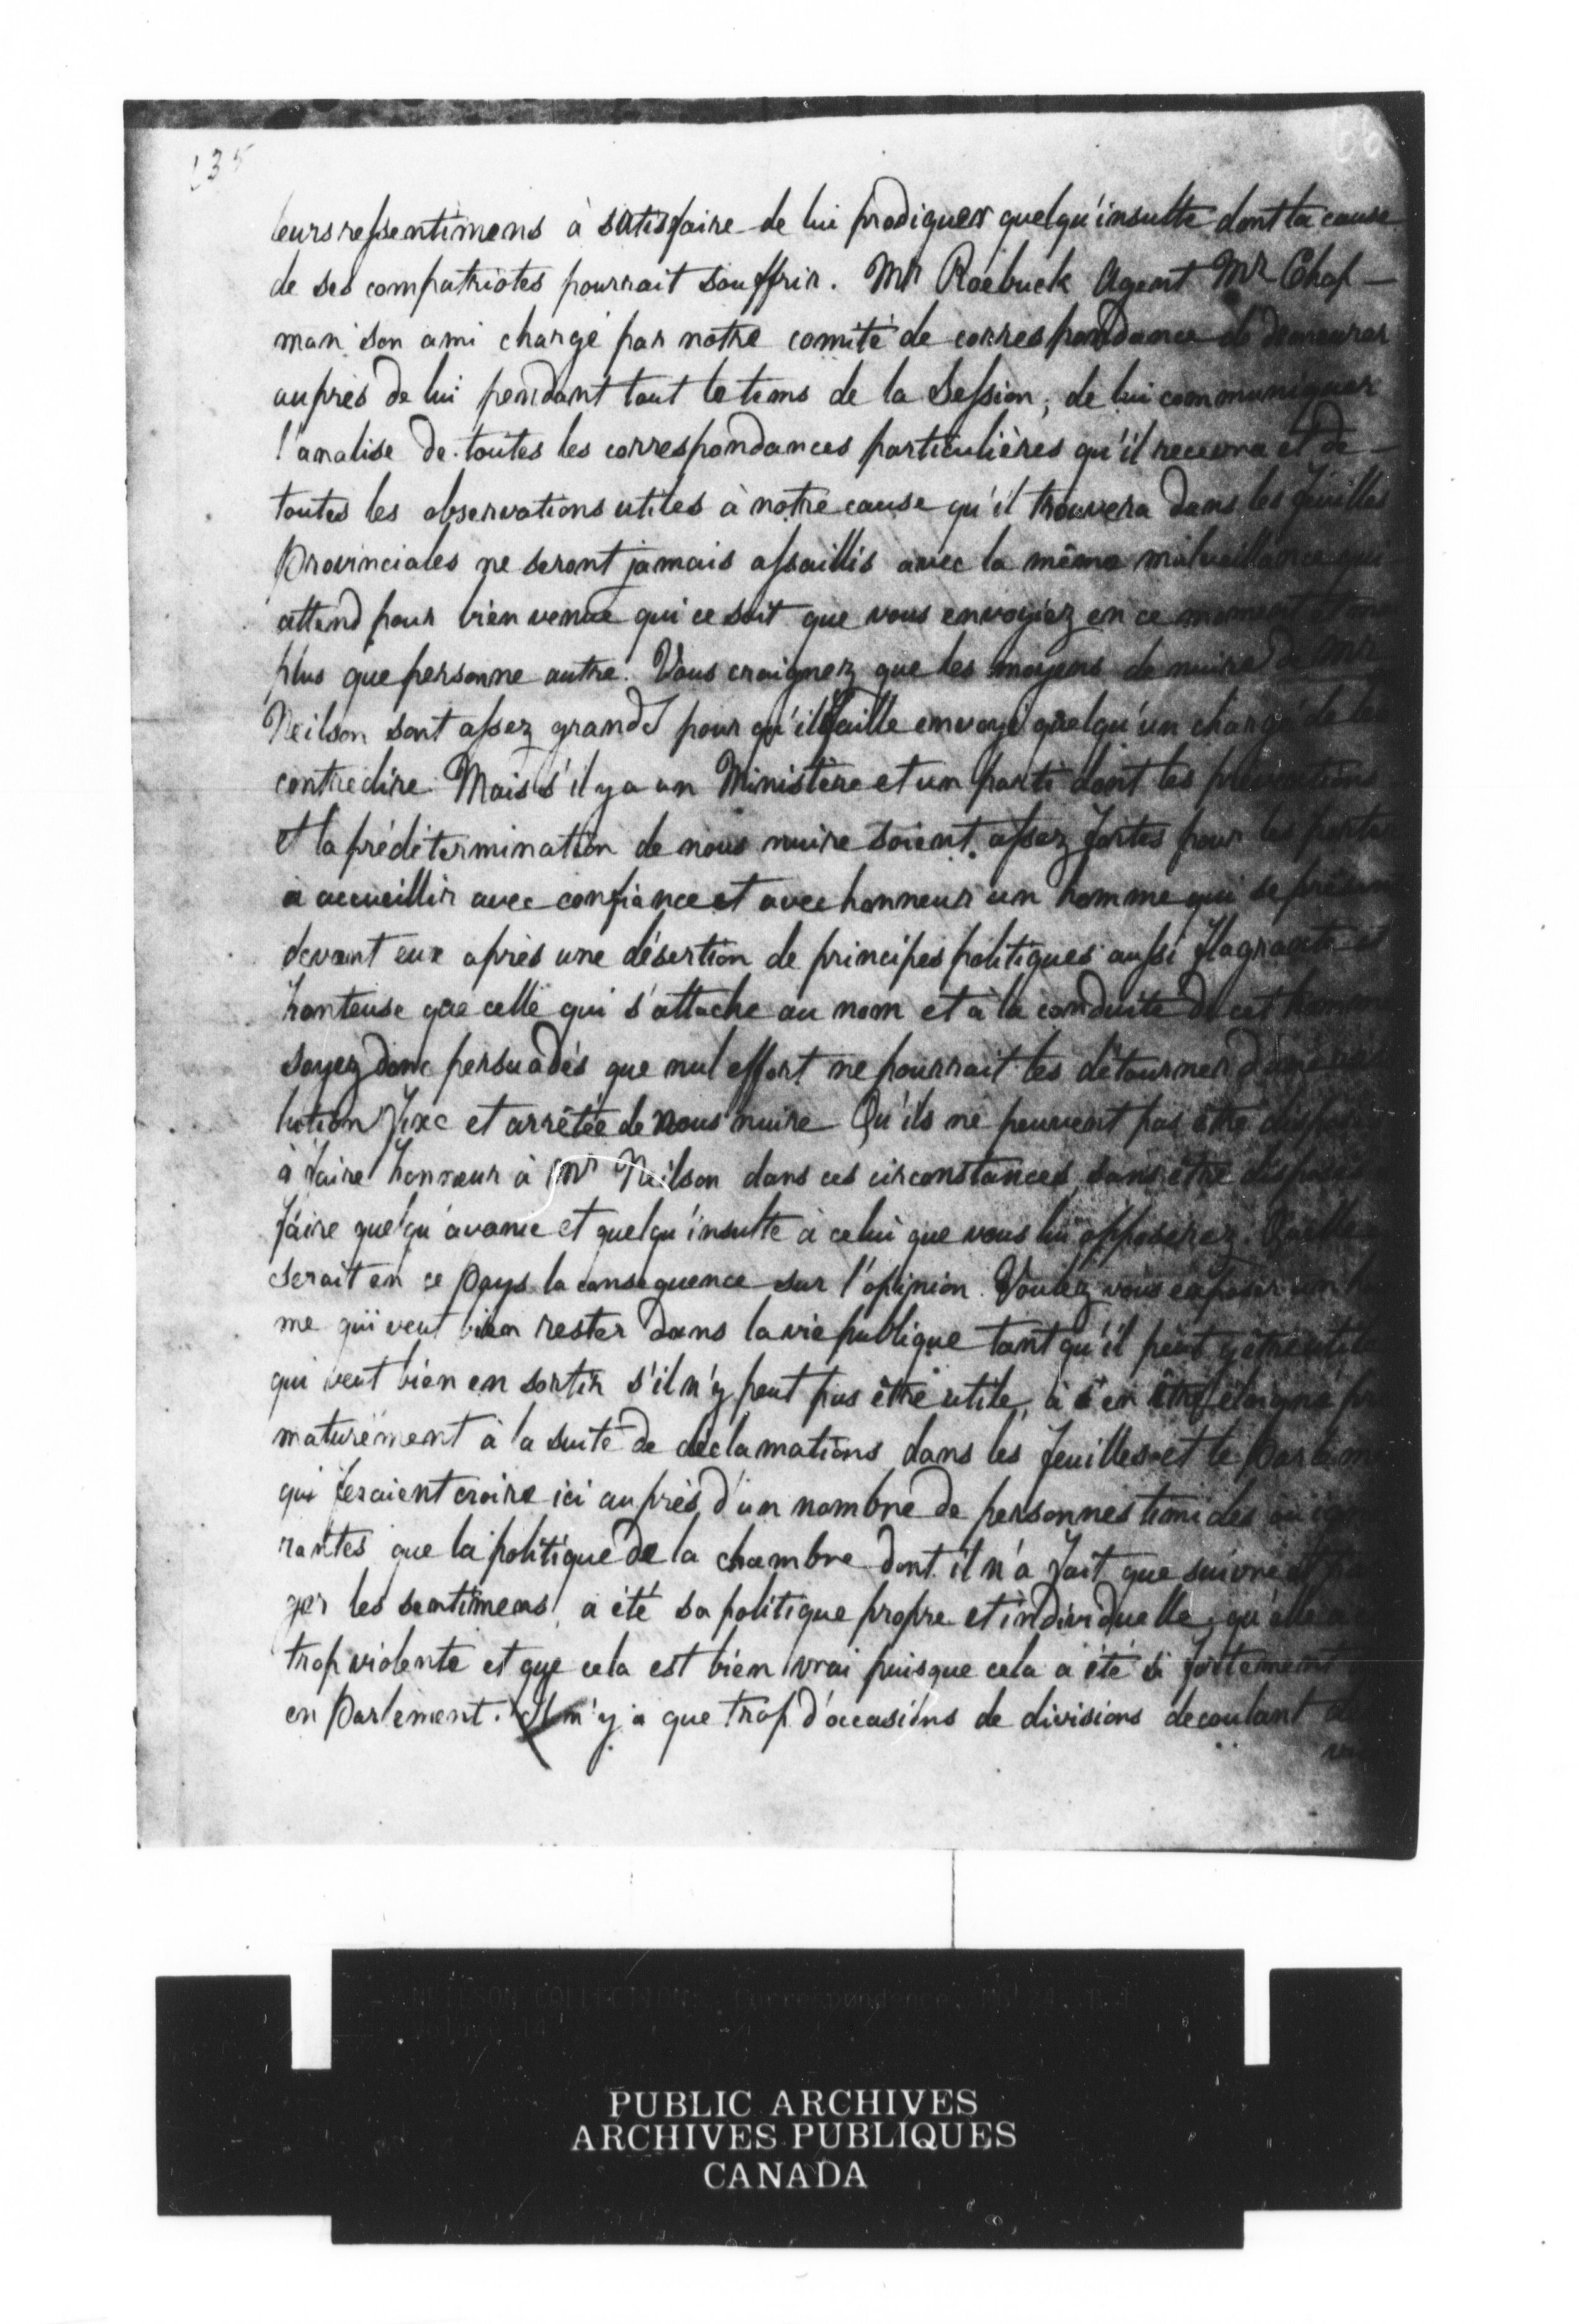 135
leurs ressentimens à satisfaire de lui prodiguer quelqu'insulte dont la cause
de ses compatriotes pourrait souffrir. Mr Roebuck Agent Mr Chap-
man son ami chargé par notre comité de correspondance de demeurer
auprès de lui pendant tout le tems de la Session, de lui communiquer
l'analise de toutes les correspondances particulières qu'il recevra et de
toutes les observations utiles à notre cause qu'il trouvera dans les feuilles
Provinciales ne seront jamais assaillis avec la même malveillance qui
attend pour bien venue qui ce soit que vous envoyiez en ce moment
plus que personne autre. Vous craignez que les moyens de nuire de Mr
Neilson sont assez grands pour qu'il faille envoyé quelqu'un chargé de les
contredire. Mais s'il y a un Ministère et un parti dont les préventions
et la prédétermination de nous nuire soient assez fortes pour les porter
à accueillir avec confiance et avec honneur un homme qui se présente
devant eux après une désertion de principes politiques aussi flagrante et
honteuse que celle qui s'attache au nom et à la conduite de cet homme
soyez donc persuadés que nul effort ne pourrait les détourner d'une réso
lution fixe et arrêtée de nous nuire Qu'ils ne peuvent pas être disposés
à faire honneur à Mr Neilson dans ces circonstances sans être disposés
faire quelqu'avanie et quelqu'insulte à celui que vous lui opposerez. Quelle
serait en ce Pays la consequence sur l'opinion. Voulez vous exposer un hom
me qui veut bien rester dans la vie publique tant qu'il peut y être utile
qui veut bien en sortir s'il n'y peut pas être utile, à s'en être éloigné pré
maturement à la suite de déclamations dans les feuilles et le Parlement
qui feraient croire ici auprès d'un nombre de personnes timides ou igno
rantes que la politique de la chambre dont il n'a fait que suivre et
ger les sentimens a été sa politique propre et individuelle, qu'elle
trop violente et que cela est bien vrai puisque cela a été si fortement
en Parlement. Il n'y a que trop d'occasions de divisions decoulant
PUBLIC ARCHIVES
ARCHIVES PUBLIQUES
CANADA